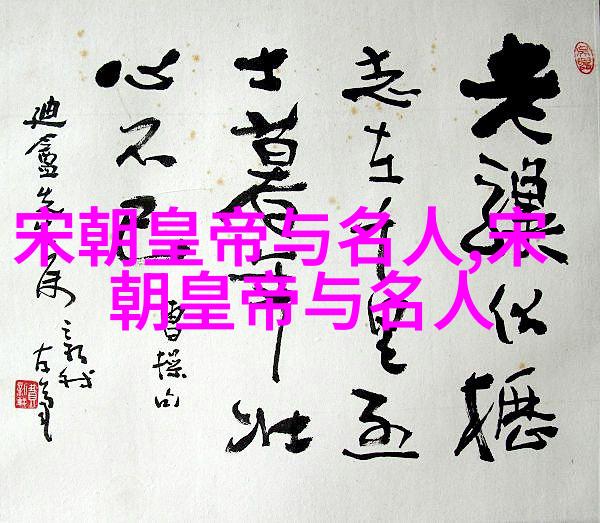 宋朝皇帝与名人,宋
朝皇帝与名人
老驥伏櫪
志在千里烈
士暮年壮
心不已
曹操句
迪盦先生属
左笔